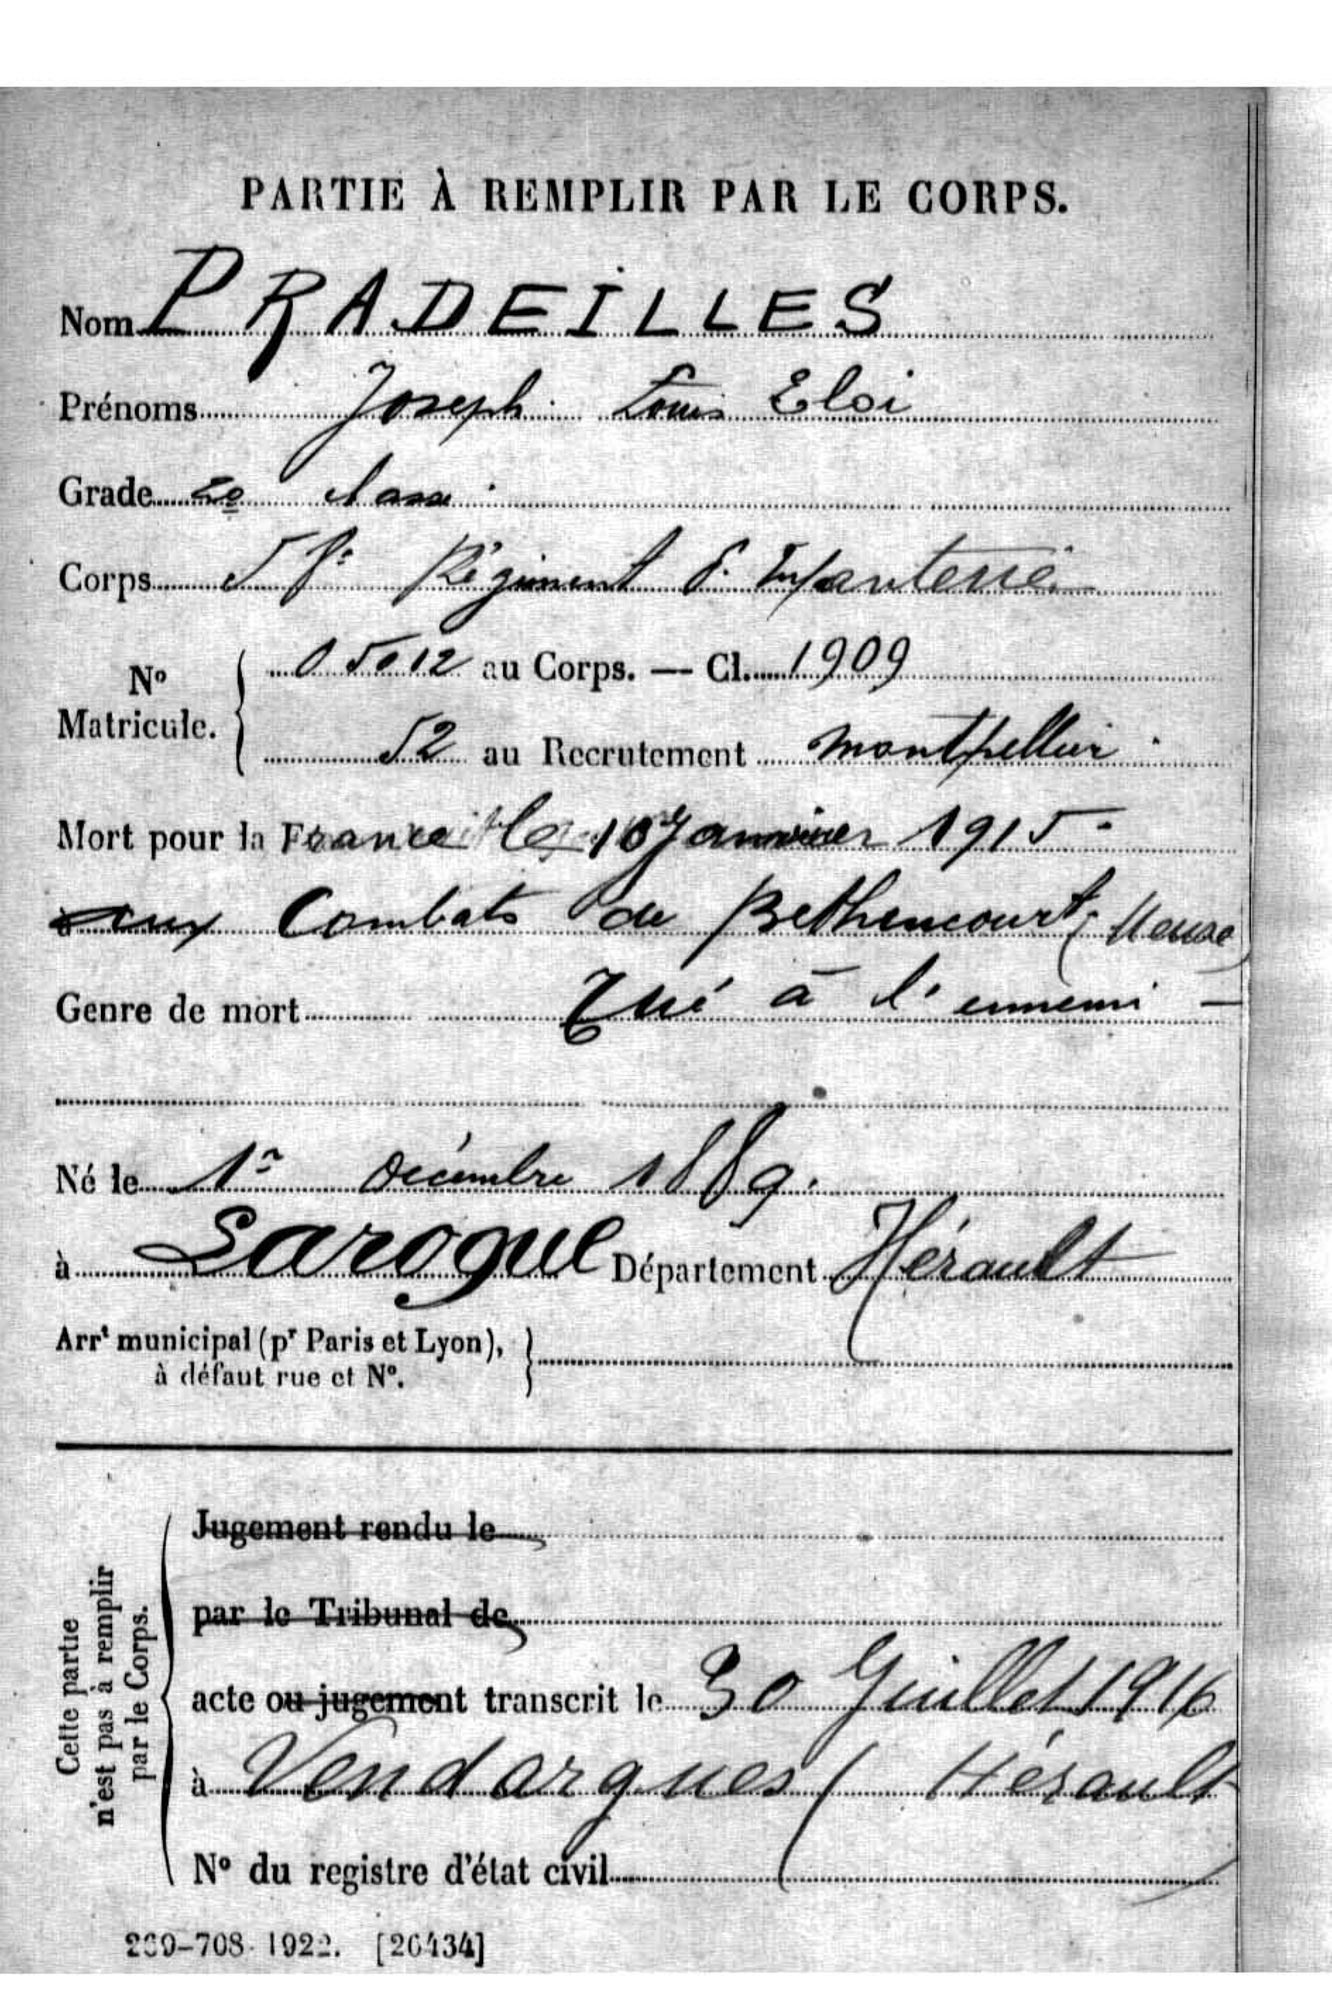 PARTIE À REMPLIR PAR LE CORPS.
Nom PRADEILLES
Prénoms Joseph Louis Eloi
Grade 2e classe
Corps 58e Régiment d'Infanterie
No Matricule. { 05012 au Corps. — Cl. 1909
52 au Recrutement Montpellier
Mort pour la France le 10 Janvier 1915
aux Combats de Bethencourt (Meuse)
Genre de mort Tué à l'ennemi —
Né le 1er Décembre 1889.
à Laroque Département Hérault
Arrt municipal (pr Paris et Lyon), }
à défaut rue et No.
Cette partie n'est pas à remplir par le Corps.
Jugement rendu le
par le Tribunal de
acte ou jugement transcrit le 30 Juillet 1916
à Vendargues (Hérault)
No du registre d'état civil
269-708-1922. [26434]